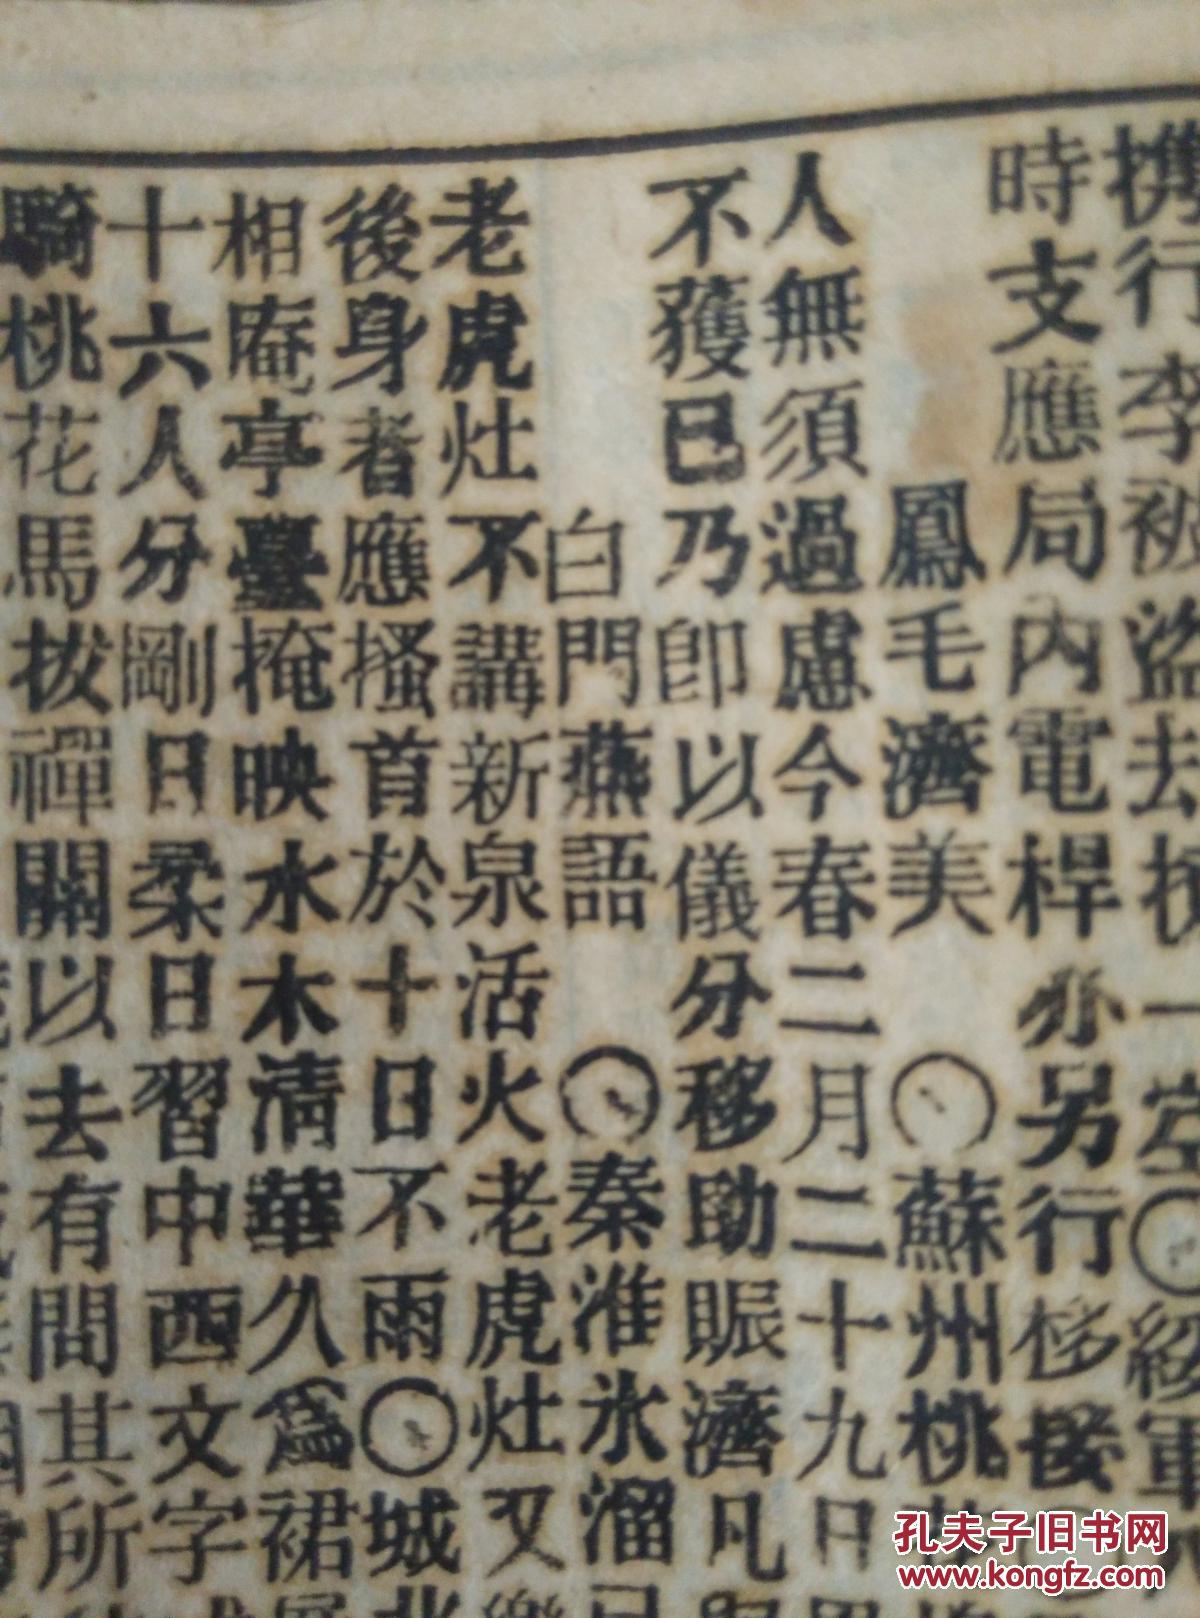 携行李被盜去挾一空○綏軍
時支應局內電桿亦另行移接
鳳毛濟美○蘇州桃
人無須過慮今春二月二十九日
不獲已乃即以儀分移助賑濟凡
白門燕語○秦淮氷溜已
老虎灶不講新泉活火老虎灶又樂
後身者應搔首於十日不雨○城北
相庵亭臺掩映水木清華久爲裙屐
十六人分剛日柔日習中西文字
騎桃花馬拔禪關以去有問其所
孔夫子旧书网
www.kongfz.com